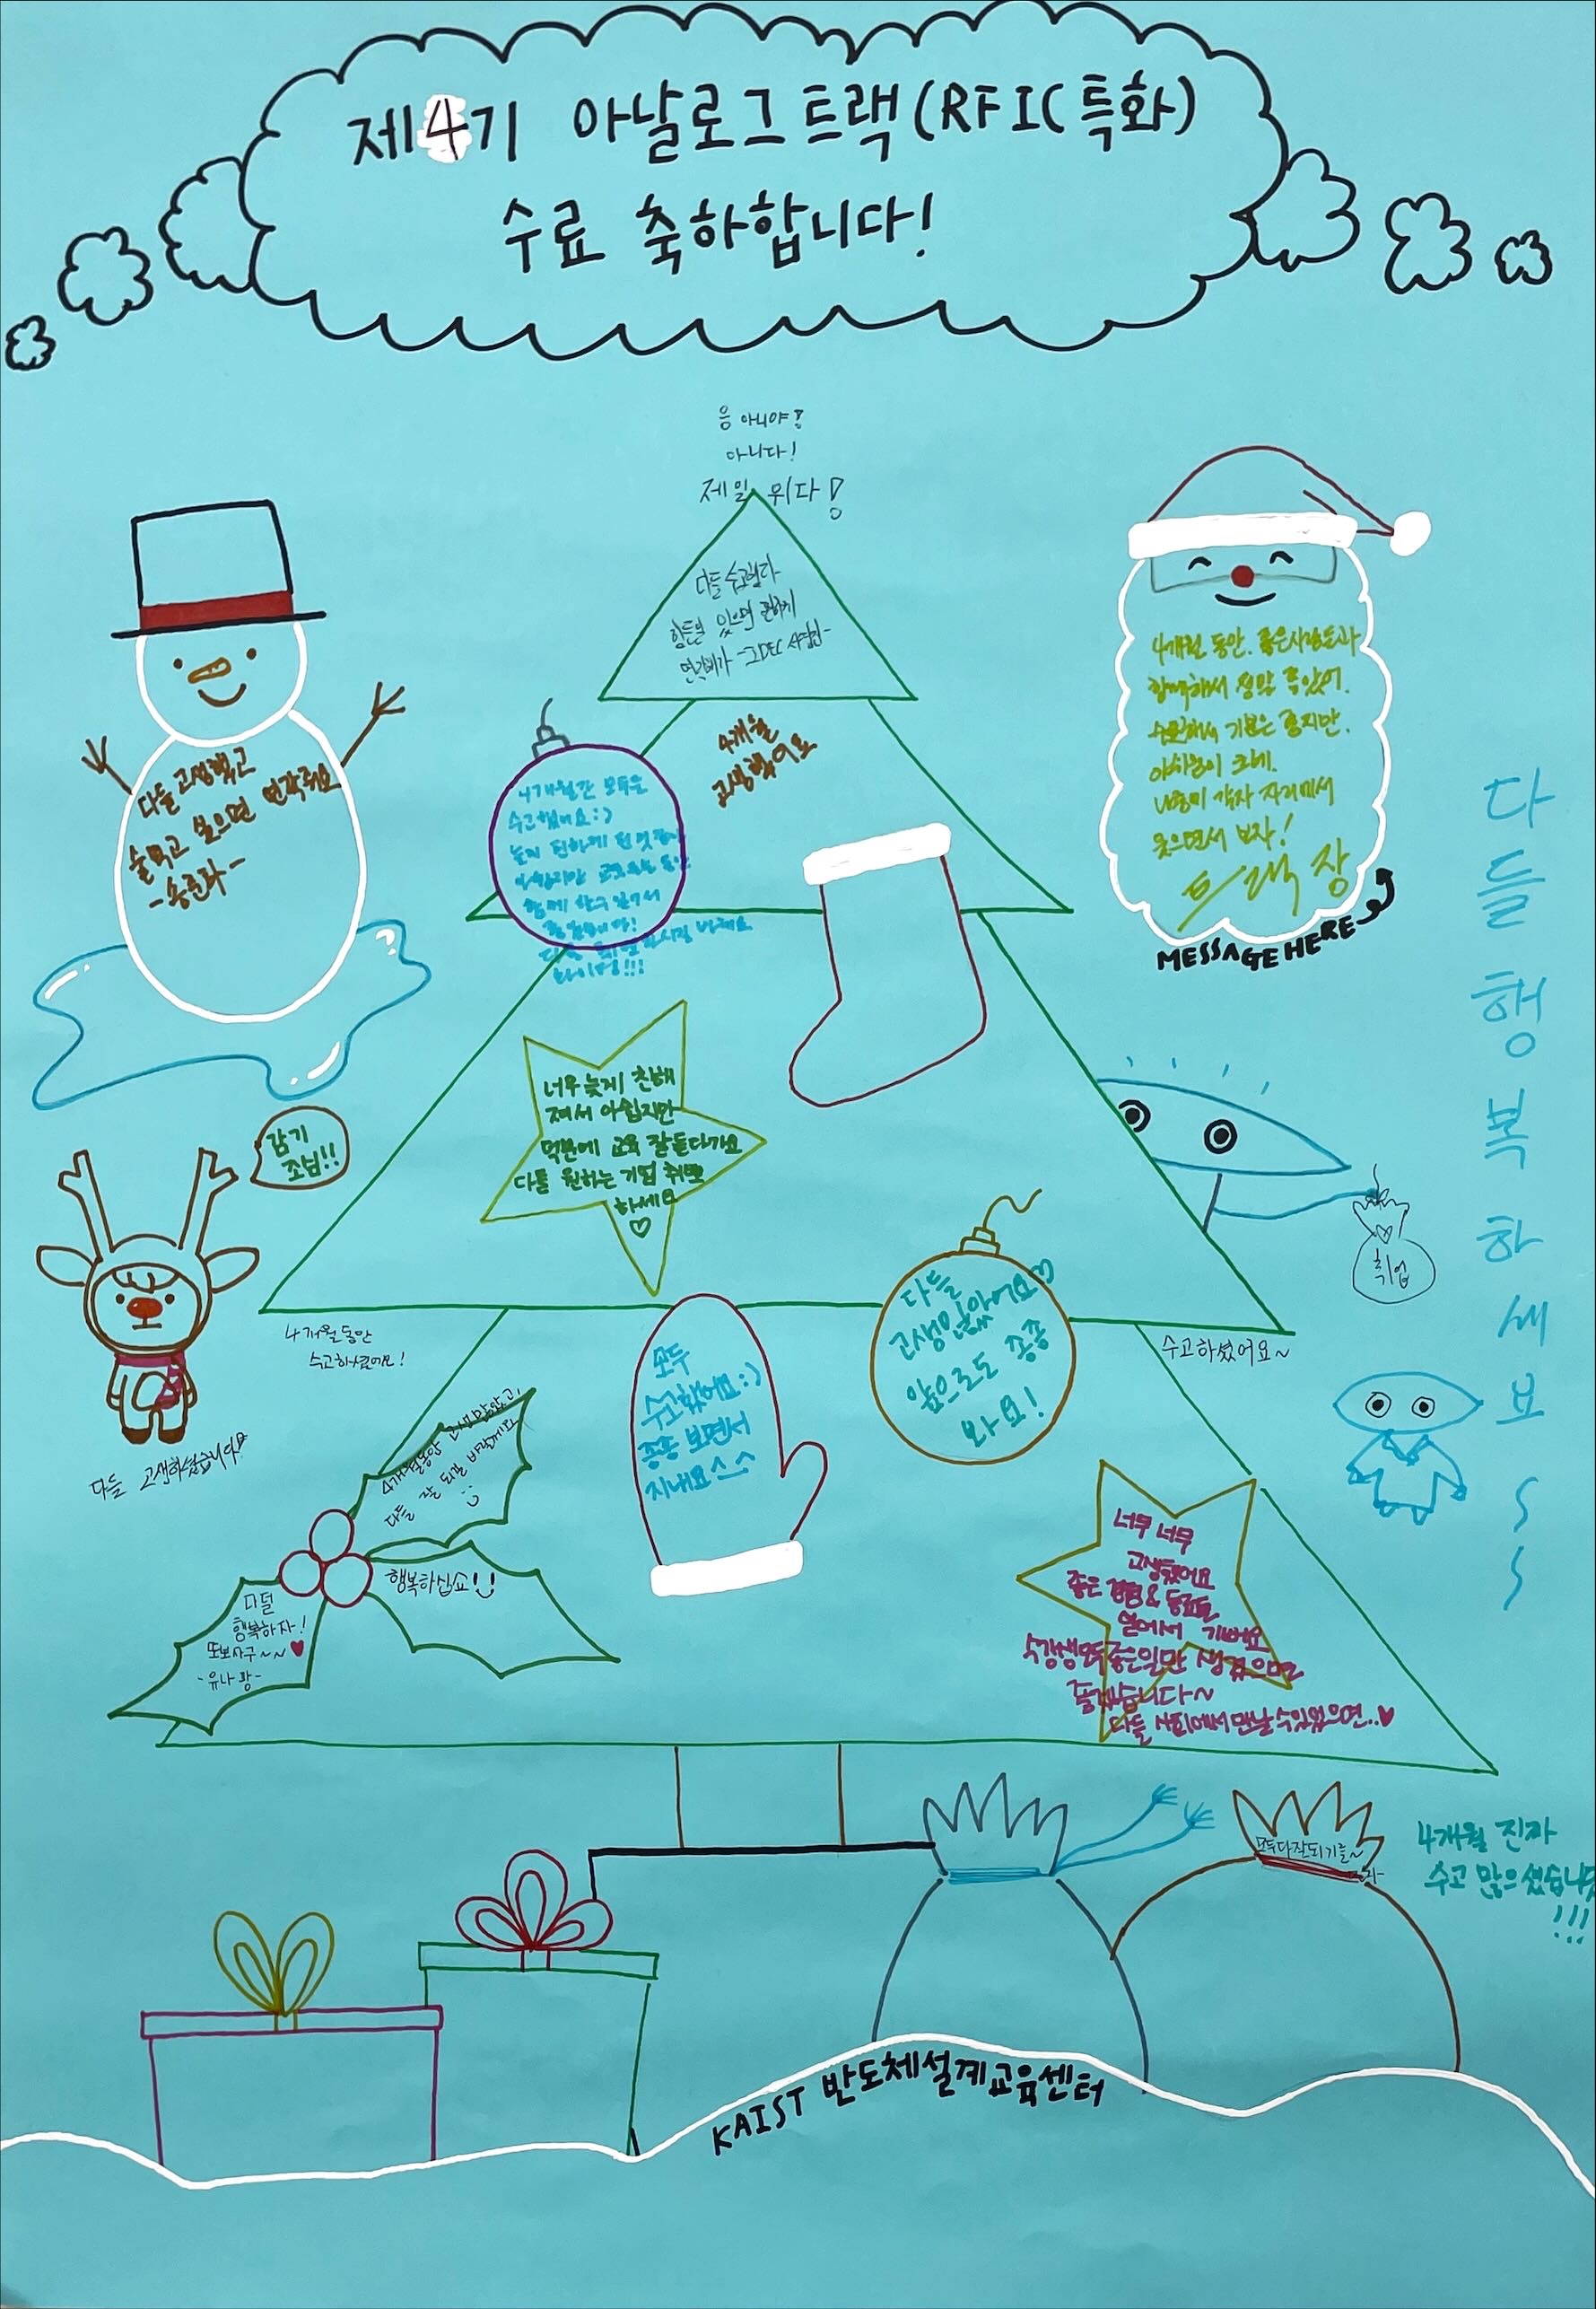 제4기 아날로그 트랙(RFIC 특화)
수료 축하합니다!
응 아니야!
아니다!
제일 위다!
다들 수고했다
힘든일 있으면 편하게
연락해라 -IDEC
4개월
고생했어요
4개월간 모두들
수고했어요:)
함께 할 수 있어서
화이팅!!!
다들 고생했고
술먹고 싶으면 연락줘요
4개월 동안. 좋은사람들과
함께해서 정말 좋았어.
수료해서 기분은 좋지만.
아쉬움이 크네.
나중에 각자 자리에서
웃으면서 보자!
트랙장
MESSAGE HERE
다들 행복하세요~~
너무 늦게 친해
져서 아쉽지만
덕분에 교육 잘 듣다가요
다들 원하는 기업 취뽀
하세요
♡
감기
조심!!
취업
4개월동안
수고하셨어요!
수고하셨어요~
다들 고생하셨습니다!
모두
수고했어요:)
종종 보면서
지내요 ^^
다들
고생많았어요♡
앞으로도 종종
봐요!
4개월동안 고생많았고,
다들 잘 되길 바랄게요
행복하십쇼!
다덜
행복하자!
또보자구~~♥
-유나꽝-
너무 너무
고생했어요
좋은 경험 & 동료들
얻어서 기뻐요
수강생모두 좋은일만 생겼으면
좋겠습니다~
다들 사회에서 만날 수 있었으면..♥
모두 다 잘되기를~
4개월 진짜
수고 많으셨습니다
!!!
KAIST 반도체설계교육센터